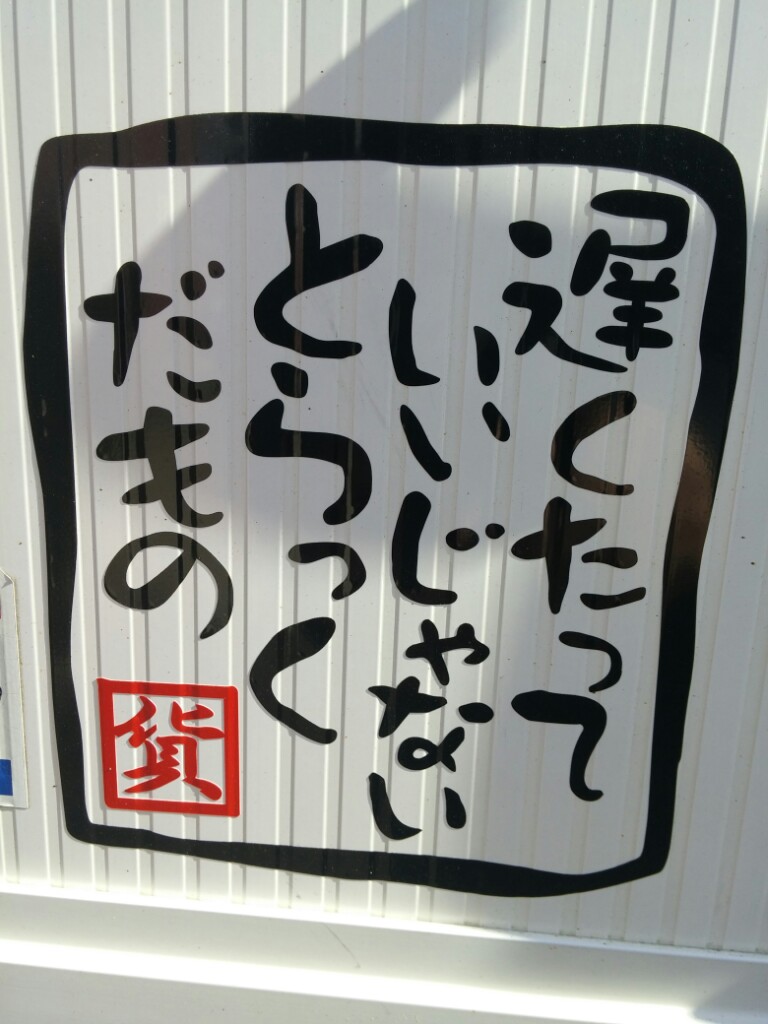 遅くたって
いいじゃない
とらっく
だもの
貨